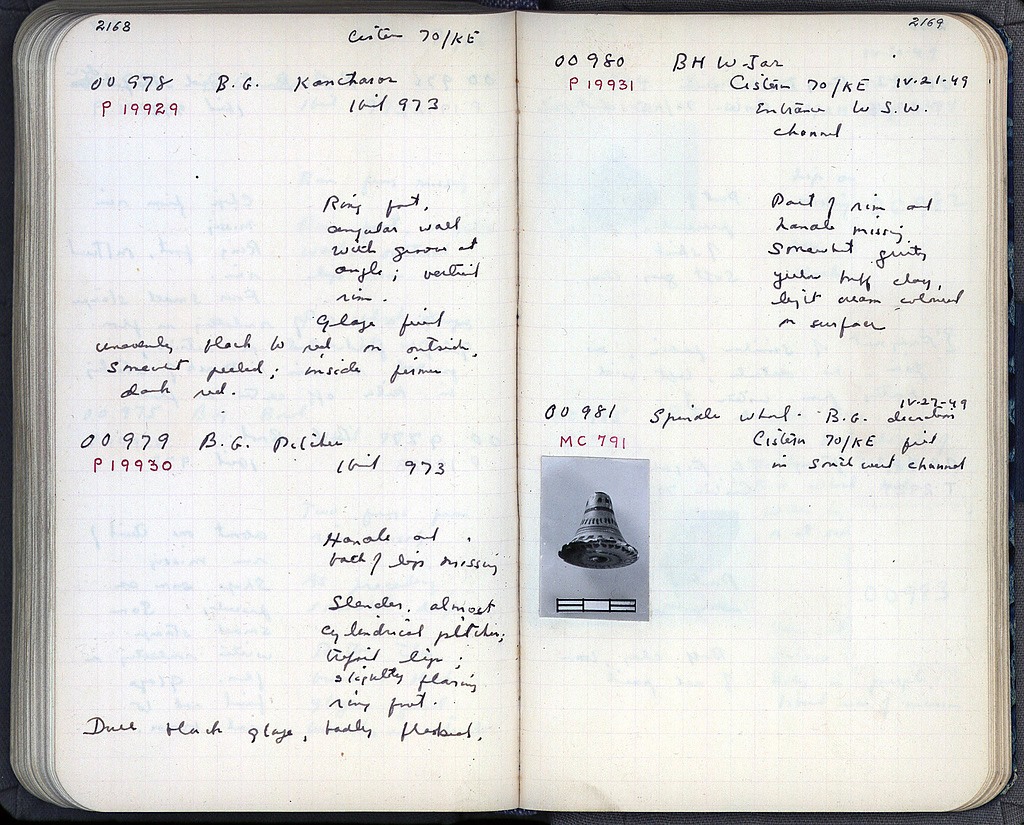 2168
Cistern 70/KE
OO 978 B.G. Kantharos
P 19929 Unit 973
Ring foot,
angular wall
with groove at
angle; vertical
rim.
Glaze fired
unevenly black to red on outside,
somewhat peeled; inside firmer
dark red.
OO 979 B.G. Pitcher
P 19930 Unit 973
Handle and
back of lip missing
Slender, almost
cylindrical pitcher;
trefoil lip;
slightly flaring
ring foot.
Dull black glaze, badly flaked.
2169
OO 980 BH W-Jar
P 19931 Cistern 70/KE IV-21-49
Entrance W.S.W.
channel
Part of rim and
handle missing.
Somewhat gritty
yellow buff clay,
light cream colored
on surface
IV-27-49
OO 981 Spindle whorl. B.G. decoration
MC 791 Cistern 70/KE
in southwest channel